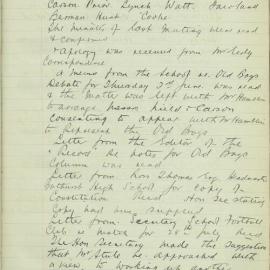 Carson Prior Lynch Watt
Berman Hunt Cooke
The minutes of last meeting were read
& confirmed
Apology was received from Mr
Correspondence
A memo from the School re Old Boys
Debate for Thursday 3rd June was read
& the matter was left with Mr
to arrange
consenting to appear with Mr
to represent the Old Boys
Letter from the Editor of the
Record re notes for Old Boys
Column was read
Letter from Headmaster
Bathurst High School for copy of
Constitution Read Hon Sec stating
Copy had been supplied
Letter from Secretary School Football
Club re match for 28th July Read
The Hon Secretary made the suggestion
that Mr be approached with
a view to working up another